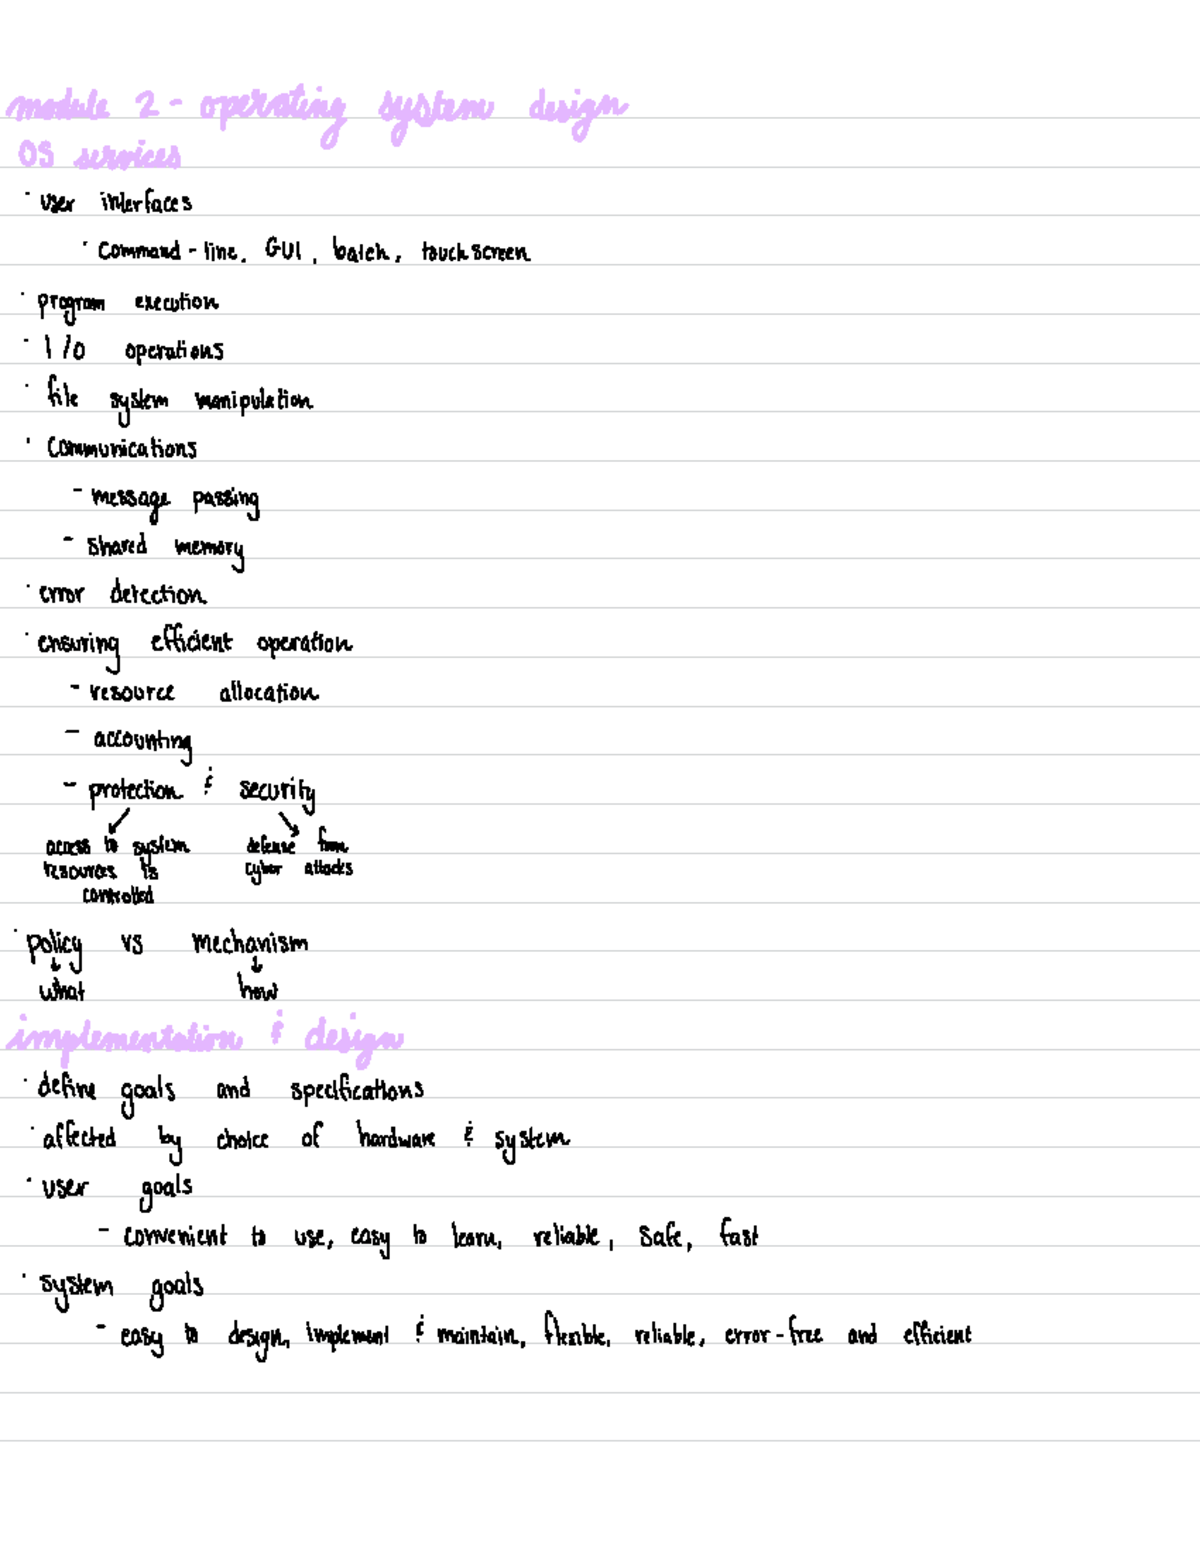 module 2 - operating system design
OS services
· user interfaces
· Command-line, GUI, batch, touchscreen
· program execution
· I/O operations
· file system manipulation
· Communications
- message passing
- shared memory
· error detection
· ensuring efficient operation
- resource allocation
- accounting
- protection & security
access to system defense from
resources is cyber attacks
controlled
· policy vs mechanism
what how
implementation & design
· define goals and specifications
· affected by choice of hardware & system
· user goals
- convenient to use, easy to learn, reliable, safe, fast
· system goals
- easy to design, implement & maintain, flexible, reliable, error-free and efficient